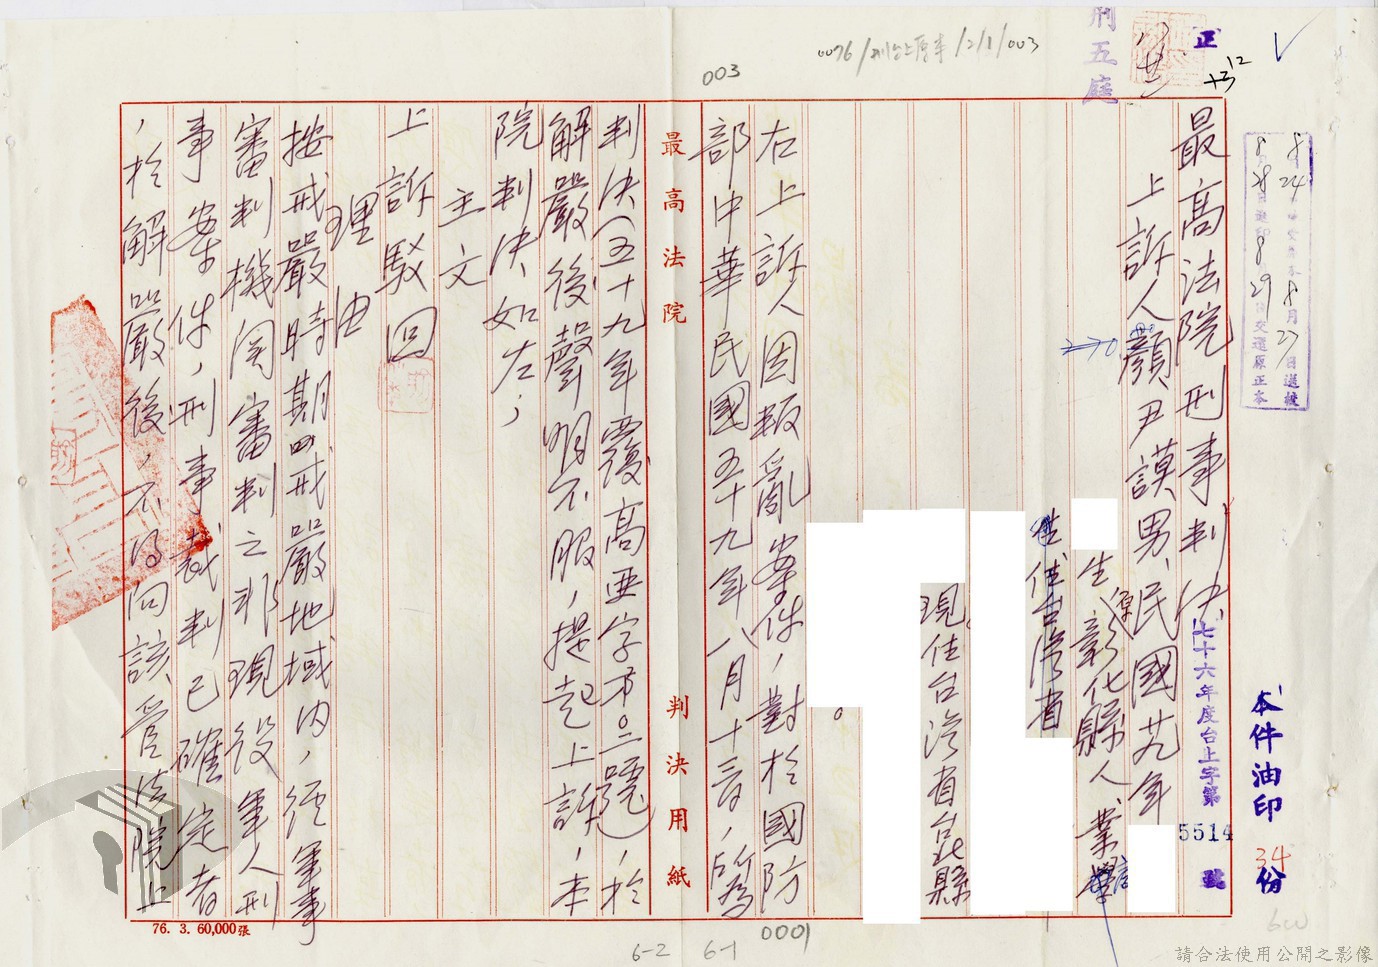 正
刑五庭
003
0076/刑台上原本/2/1/003
本件油印34份
最高法院刑事判決
七十六年度台上字第5514號
上訴人顏尹謨男、民國廿九年
生彰化縣人業
住台灣省
現住台灣省台北縣
。
右上訴人因叛亂案件，對於國防
部中華民國五十九年八月十二日，
最高法院
判決用紙
判決（五十九年覆高亞字第○二號），於
解嚴後聲明不服，提起上訴，本
院判決如左，
主文
上訴駁回
理由
按戒嚴時期戒嚴地域內，經軍事
審判機關審判之非現役軍人刑
事案件，刑事裁判已確定者
，於解嚴後，不得向該管法院上
76. 3. 60,000張
6-2
6-1
0001
請合法使用公開之影像